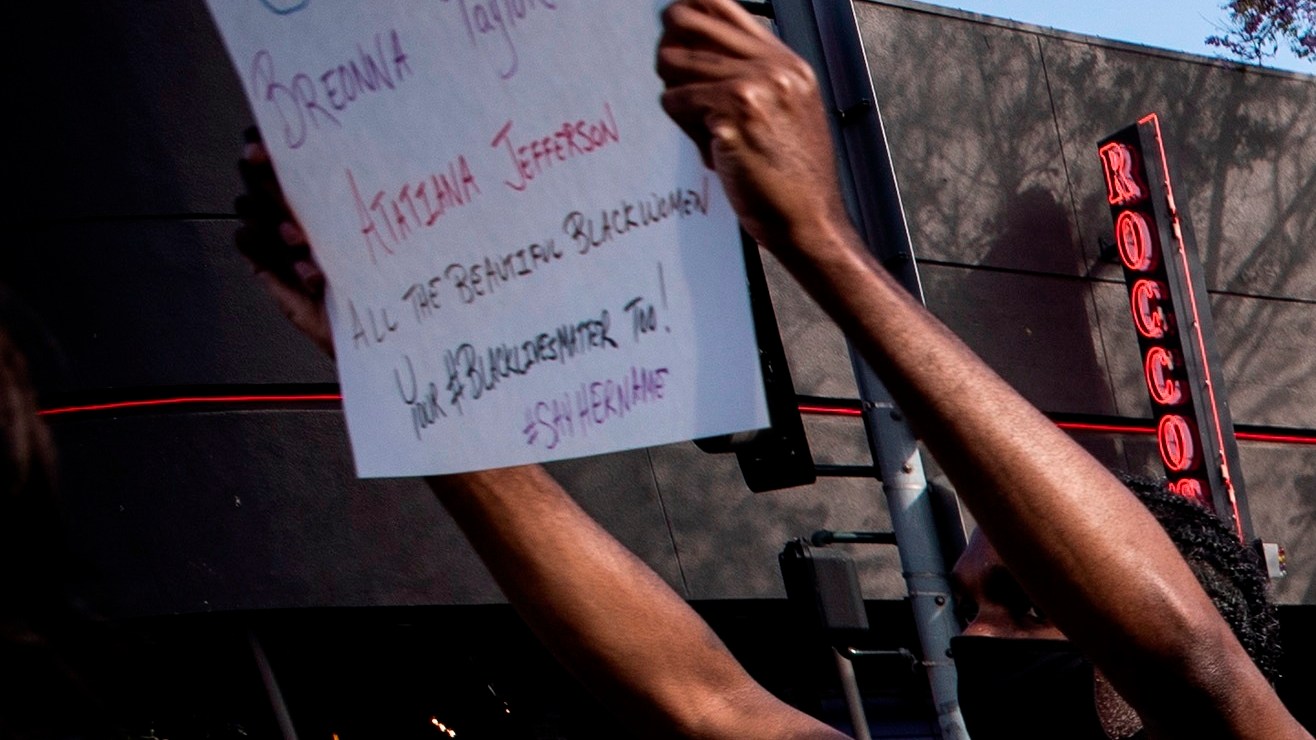 BREONNA Taylor
ATATIANA JEFFERSON
ALL THE BEAUTIFUL BLACK WOMEN
YOUR #BLACKLIVESMATER TOO!
#SAYHERNAME
ROCCO